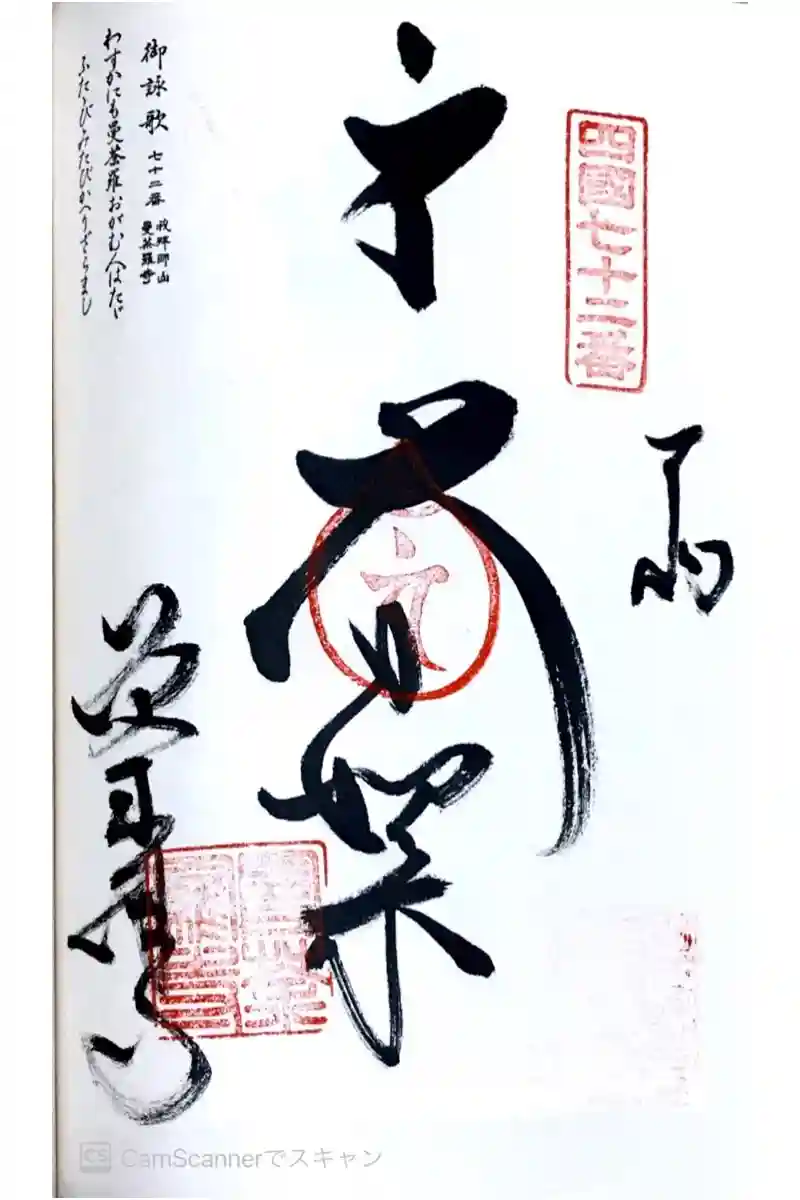 四國七十二番
大日如来
曼荼羅寺
御詠歌 七十二番 我拝師山 曼荼羅寺
わすかにも曼荼羅おがむ人はたゞ
ふたゝびみたびかへらざらまし
CS CamScannerでスキャン